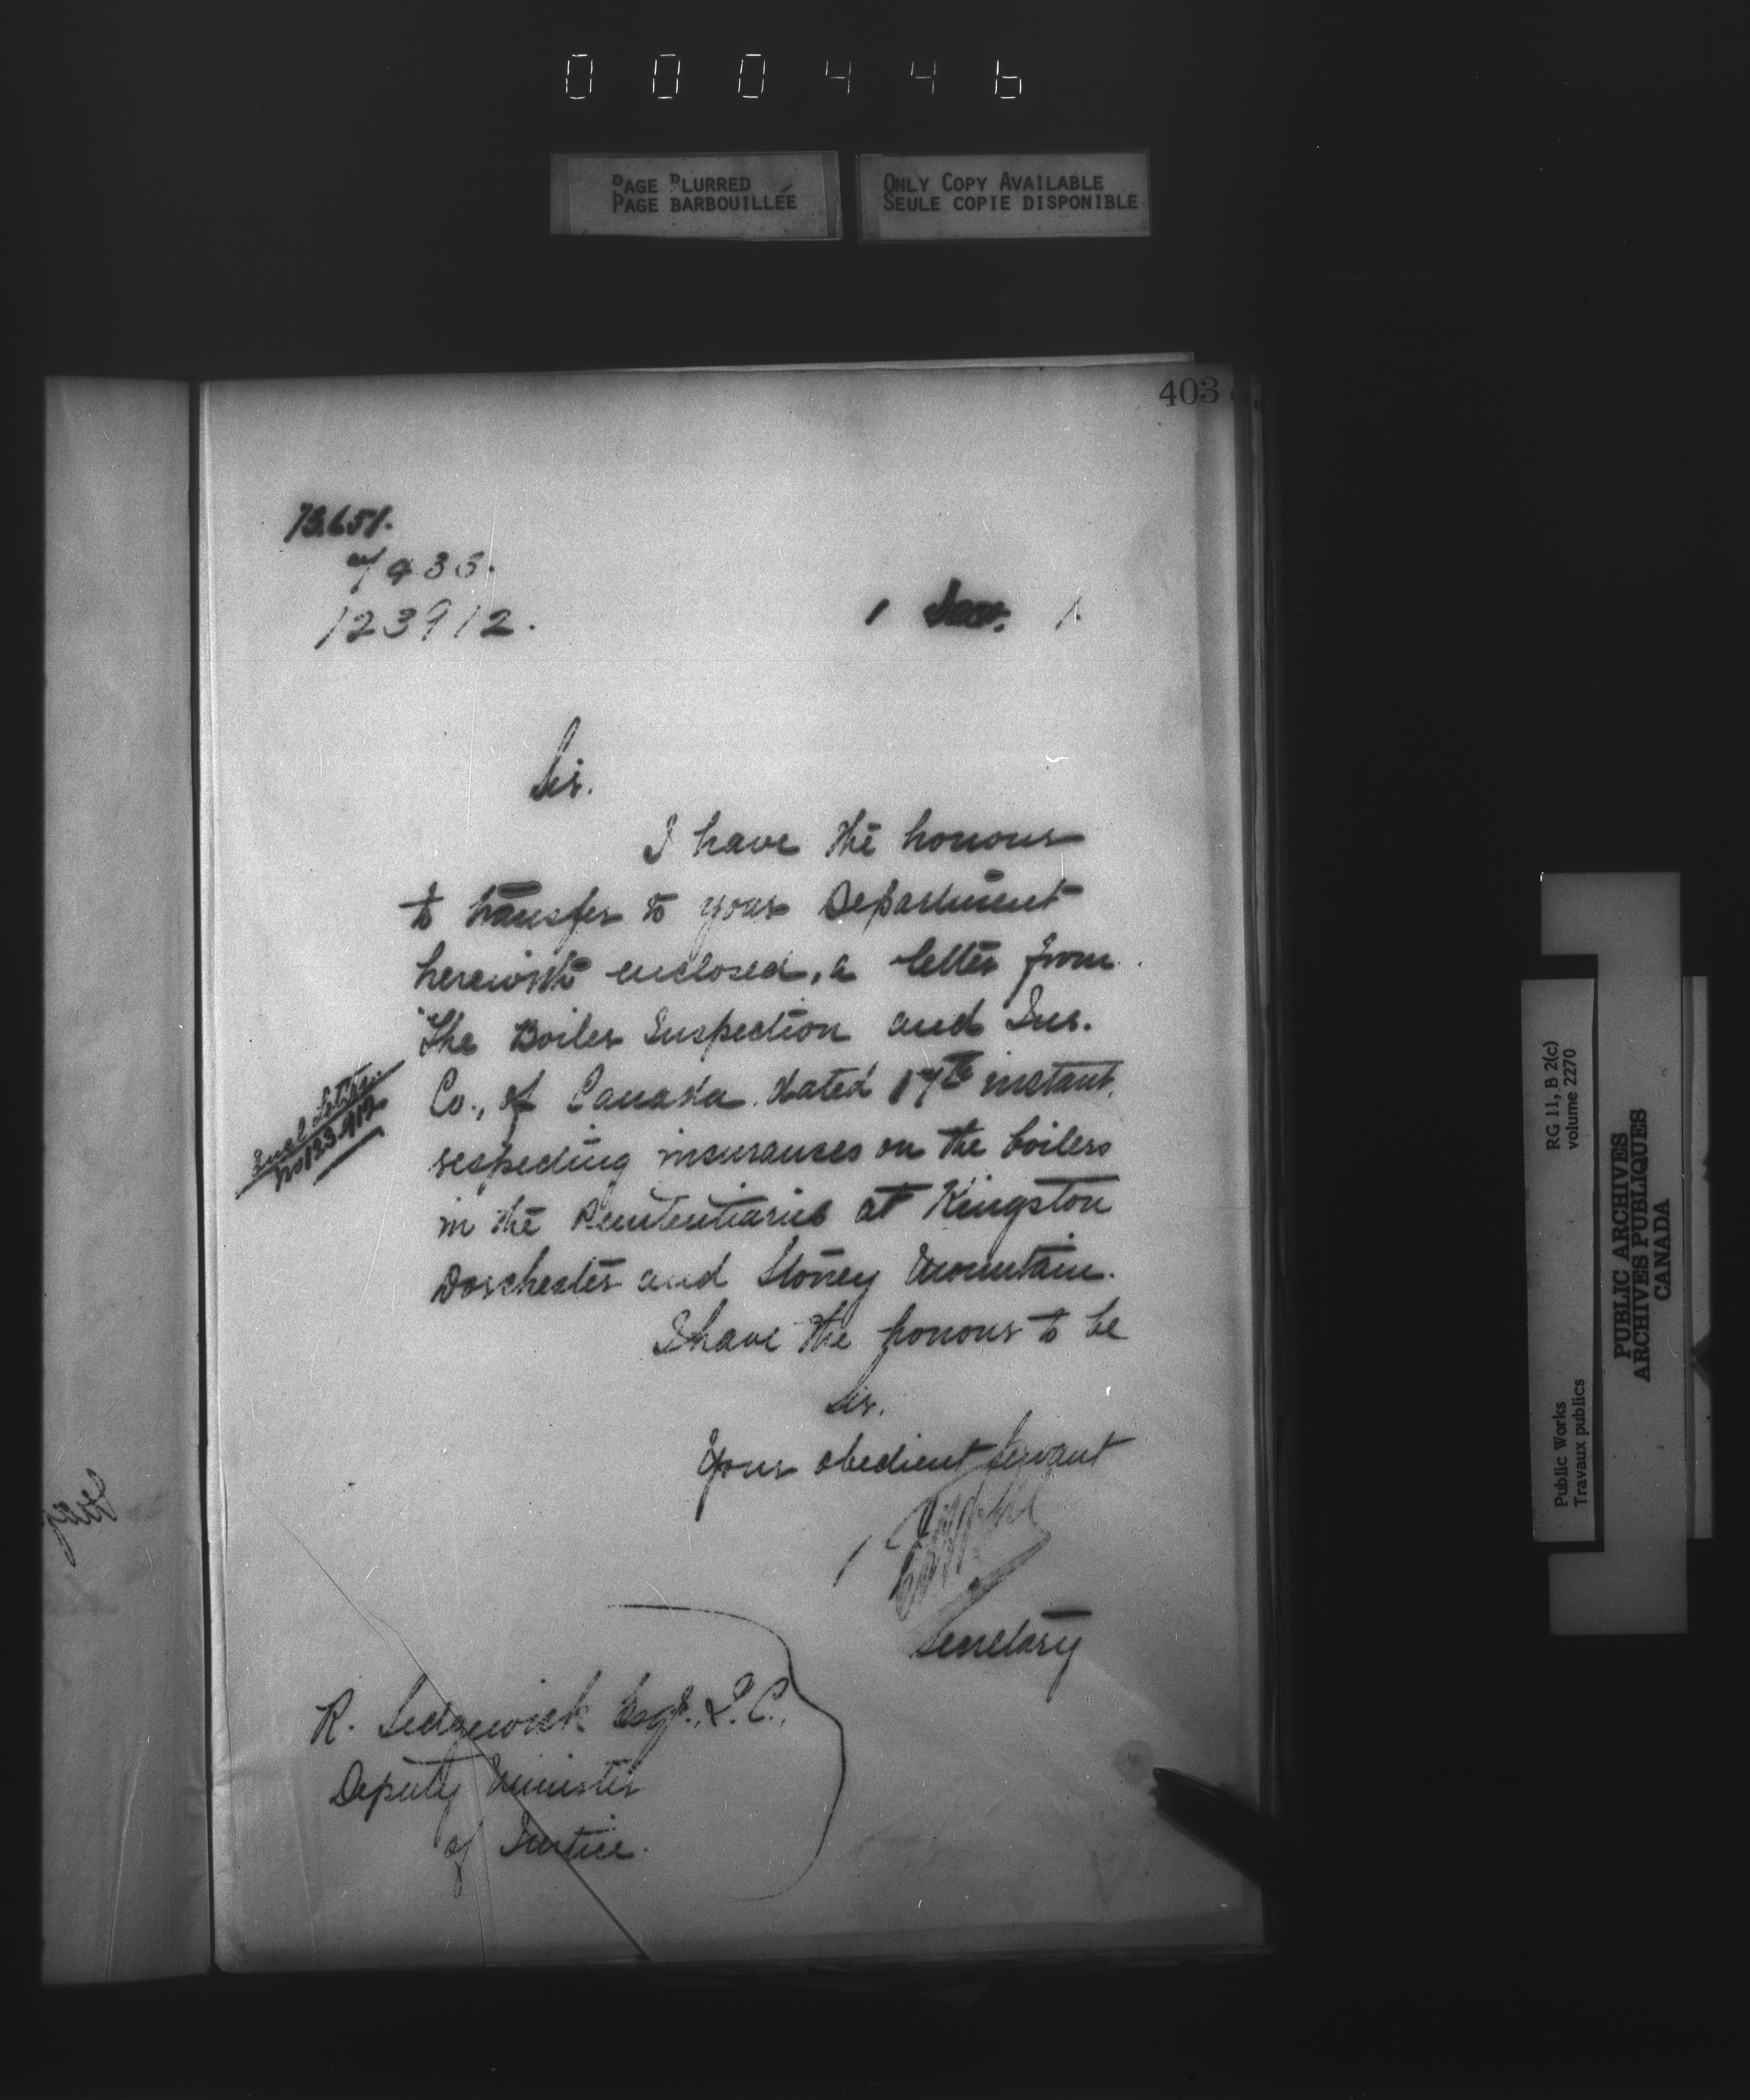 000446
PAGE BLURRED
PAGE BARBOUILLÉE
ONLY COPY AVAILABLE
SEULE COPIE DISPONIBLE
403
73.651.
123912.
Sir.
I have the honour
to transfer to your Department
herewith enclosed, a letter from
"The Boiler Inspection and Ins.
Co., of Canada dated 17th instant,
respecting insurances on the boilers
in the Penitentiaries at Kingston
Dorchester and Stoney Mountain.
I have the honour to be
Sir.
Your obedient Servant
Secretary
R. Sedgewick Esqr., Q.C.,
Deputy Minister
of Justice.
No 123.912
RG 11, B 2(c)
volume 2270
Public Works
Travaux publics
PUBLIC ARCHIVES
ARCHIVES PUBLIQUES
CANADA